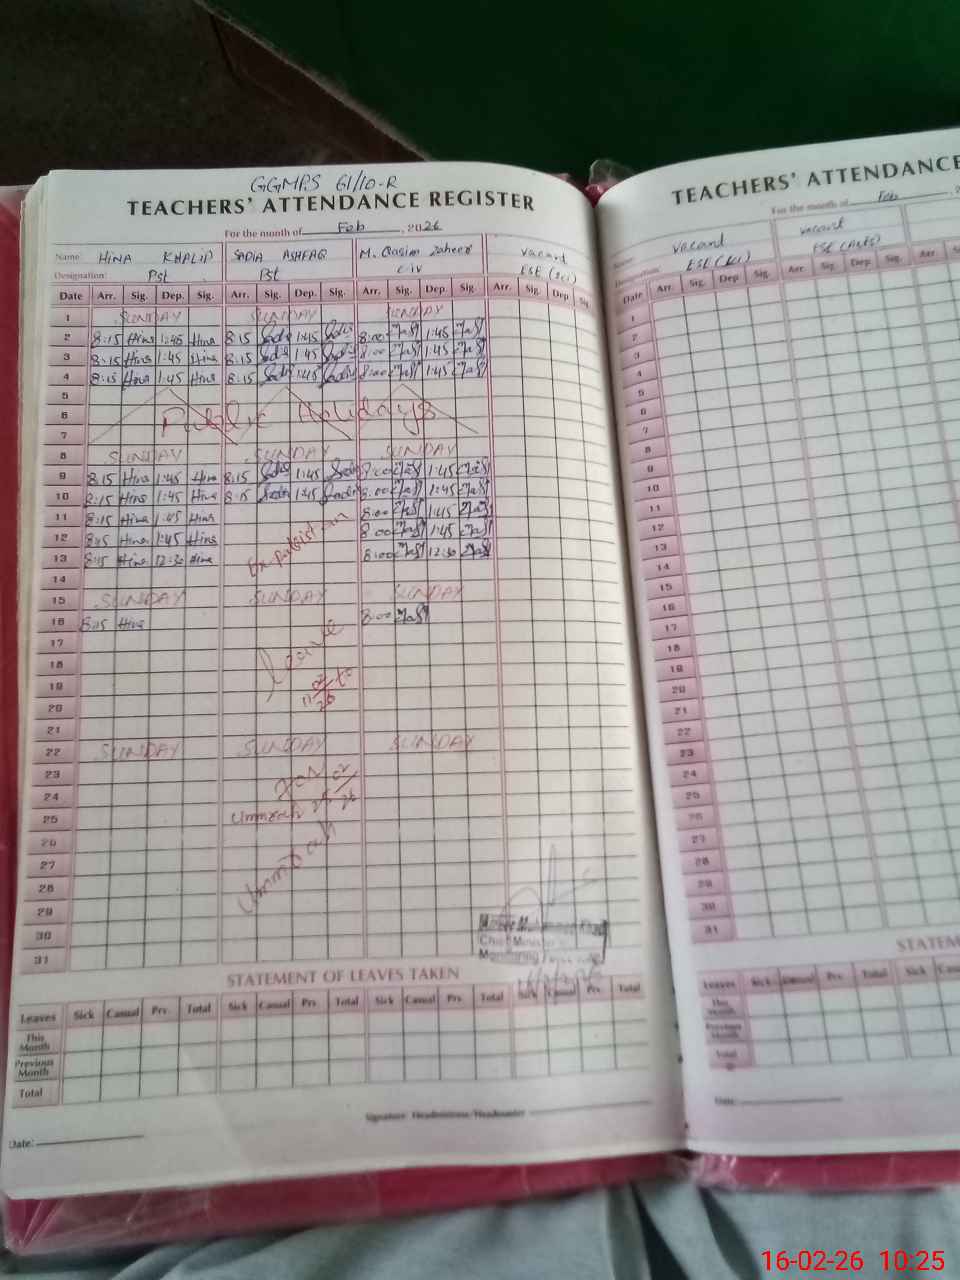 GGMPS 61/10-R
TEACHERS' ATTENDANCE REGISTER
For the month of Feb, 2026
Name: HINA KHALID SADIA ASHFAQ M. Qasim Zaheer vacant
Designation: Pst Pst C-iv ESE (Sci)
Date Arr. Sig. Dep. Sig. Arr. Sig. Dep. Sig. Arr. Sig. Dep Sig. Arr. Sig. Dep Sig.
1 SUNDAY SUNDAY SUNDAY
2 8:15 Hina 1:45 Hina 8:15 Sadia 1:45 Sadia 8:00 1:45
3 8:15 Hina 1:45 Hina 8:15 Sadia 1:45 Sadia 8:00 1:45
4 8:15 Hina 1:45 Hina 8:15 Sadia 1:45 Sadia 8:00 1:45
5
6 Public Holidays
7
8 SUNDAY SUNDAY SUNDAY
9 8:15 Hina 1:45 Hina 8:15 Sadia 1:45 Sadia 8:00 1:45
10 8:15 Hina 1:45 Hina 8:15 Sadia 1:45 Sadia 8:00 1:45
11 8:15 Hina 1:45 Hina 8:00 1:45
12 8:15 Hina 1:45 Hina 8:00 1:45
13 8:15 Hina 12:30 Hina Ex-pakistan 8:00 12:30
14
15 SUNDAY SUNDAY SUNDAY
16 8:15 Hina 8:00
17
18 leave
19
20 11/02/26 to
21
22 SUNDAY SUNDAY SUNDAY
23
24 for
25 Ummrah 02/26
26
27
28 Ummrah
29
30
31
Chief Minister's
Monitoring
STATEMENT OF LEAVES TAKEN
Leaves Sick Casual Prv. Total Sick Casual Prv. Total Sick Casual Prv. Total Sick Casual Prv. Total
This Month
Previous Month
Total
Signature Headmistress/Headmaster
Date:
TEACHERS' ATTENDANCE
For the month of Feb
Name: vacant vacant
Designation: ESE (Sci) ESE (Arts)
Date Arr. Sig. Dep. Sig. Arr. Sig. Dep. Sig. Arr Sig.
1
2
3
4
5
6
7
8
9
10
11
12
13
14
15
16
17
18
19
20
21
22
23
24
25
26
27
28
29
30
31
STATEM
Leaves Sick Casual Prv. Total Sick Cas
This Month
Previous Month
Total
Date:
16-02-26 10:25